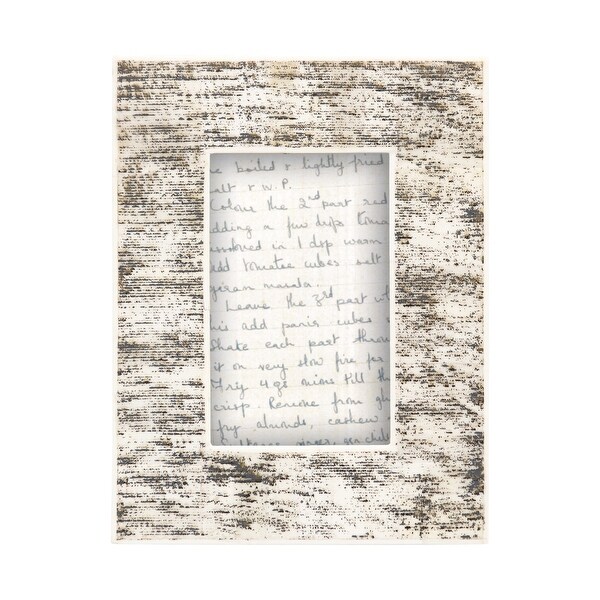 e boiled & lightly fried
alt & W.P.
Colour the 2nd part red
dding a few drops
in 1 dsp warm
add tomatoe cubes salt
geeram masala.
Leave the 3rd part wh
his add panir cubes
Shake each part
it on very slow fire for
Fry 4 90 mins till th
crisp Remove from
fry almonds, cashew
ginger,